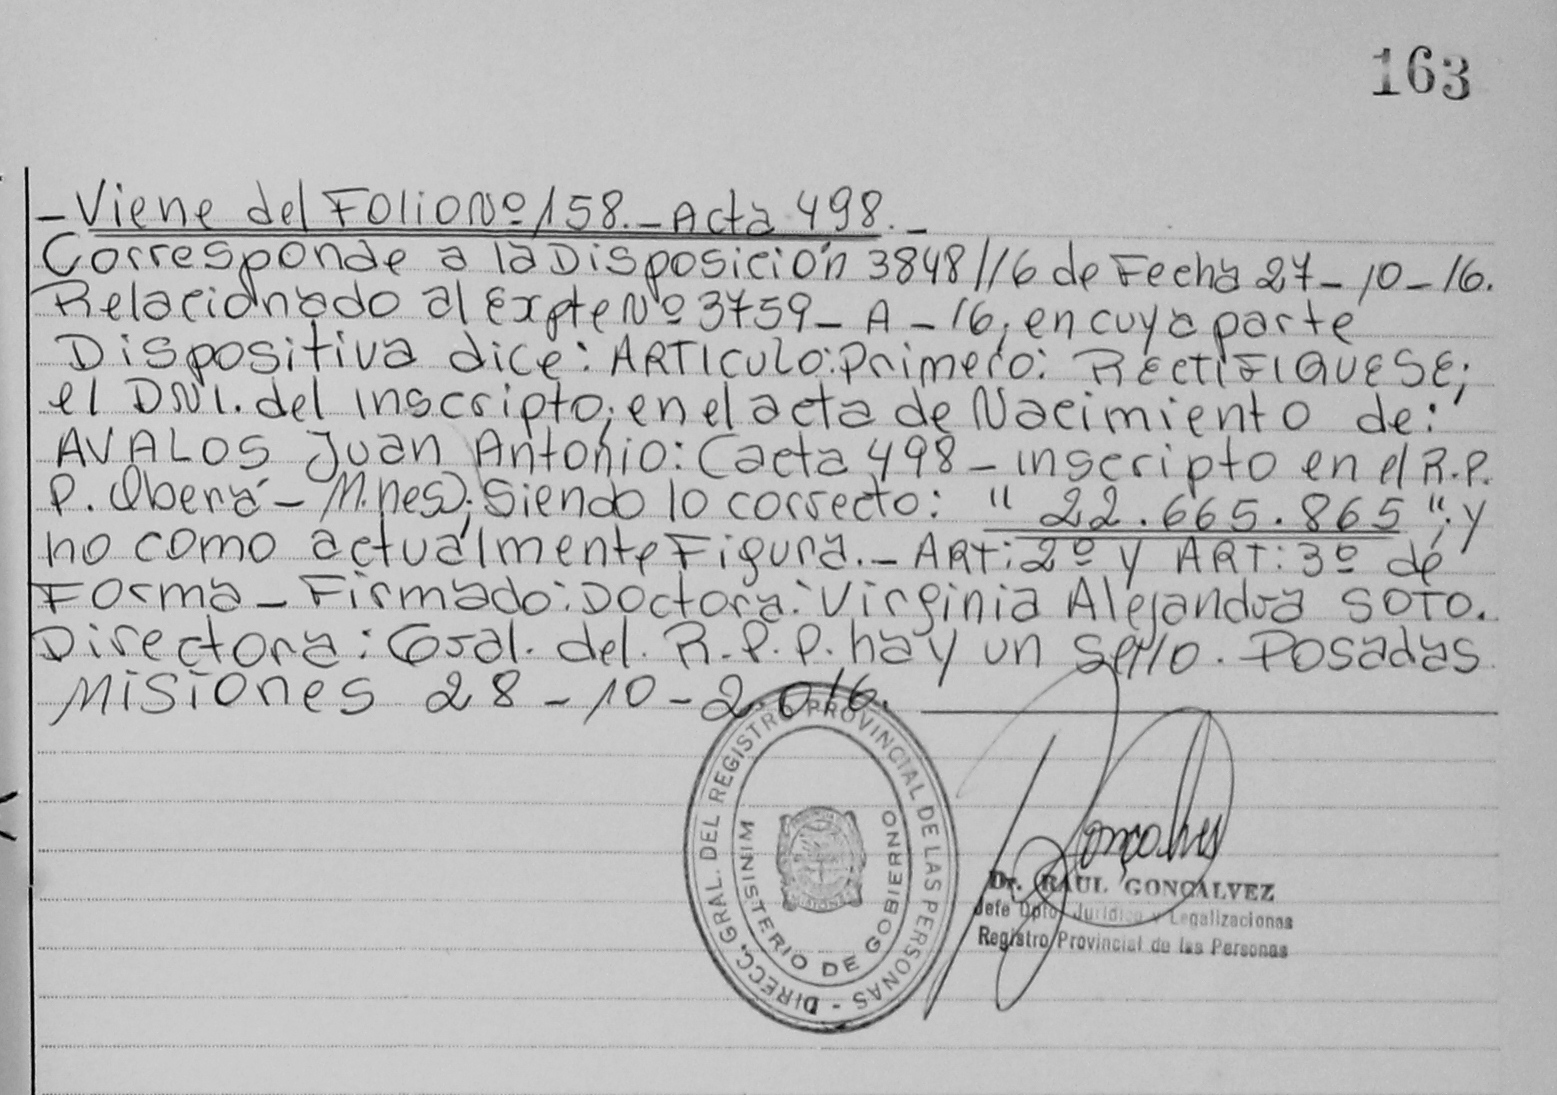 163
-Viene del Folio Nº 158.-Acta 498.-
Corresponde a la Disposición 3848//16 de Fecha 27-10-16.
Relacionado al Expte Nº 3759-A-16, en cuya parte
Dispositiva dice: ARTICULO: Primero: RECTIFIQUESE;
el DNI. del inscripto; en el acta de Nacimiento de:
AVALOS Juan Antonio: (acta 498-inscripto en el R.P.
P. Oberá-M.nes); siendo lo correcto: "22.665.865"; y
no como actualmente Figura.-ART: 2º y ART: 3º de
Forma-Firmado: Doctora: Virginia Alejandra SOTO.
Directora: Gral. del. R.P.P. hay un sello. Posadas
Misiones 28-10-2016.
DIRECC. GRAL. DEL REGISTRO PROVINCIAL DE LAS PERSONAS -
MINISTERIO DE GOBIERNO
Gonçalves
Dr. RAUL GONCALVEZ
Jefe Dpto. Jurídico y Legalizaciones
Registro Provincial de las Personas